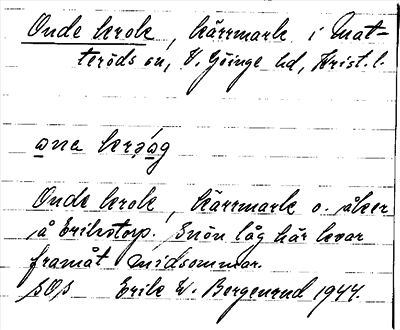 Onde krok, kärrmark i Mat-
teröds sn, V. Göinge hd, Krist. l.
one kroág
Onde krok, kärrmark o. åker
å Erikstorp. Snön låg här kvar
framåt midsommar.
SOS Erik W. Bergenrud 1944.